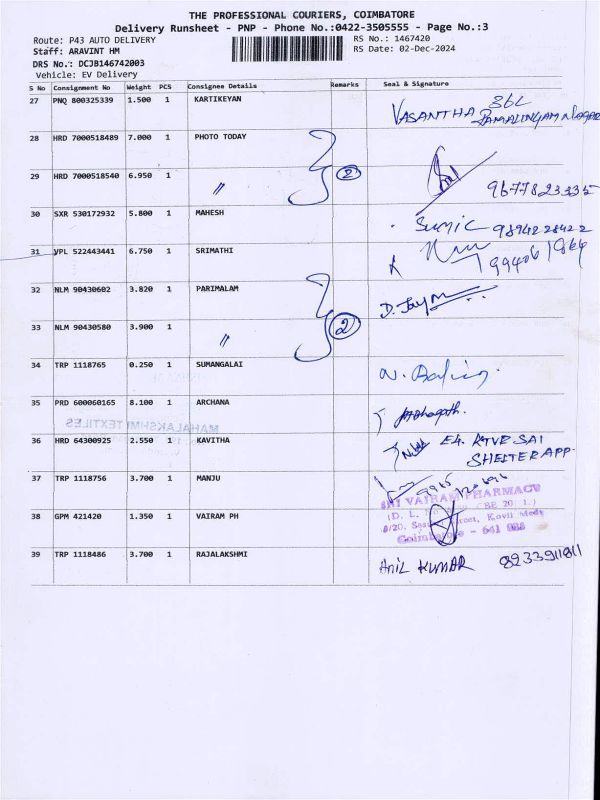 THE PROFESSIONAL COURIERS, COIMBATORE
Delivery Runsheet - PNP - Phone No.:0422-3505555 - Page No.:3
Route: P43 AUTO DELIVERY
RS No.: 1467420
Staff: ARAVINT HM
RS Date: 02-Dec-2024
DRS No.: DCJB146742003
Vehicle: EV Delivery
S No Consignment No Weight PCS Consignee Details Remarks Seal & Signature
27 PNQ 800325339 1.500 1 KARTIKEYAN VASANTHA 36L
RAMALINGAM NAGAR
28 HRD 7000518489 7.000 1 PHOTO TODAY
29 HRD 7000518540 6.950 1 〃 2 9677823335
30 SXR 530172932 5.800 1 MAHESH 9894228422
31 VPL 522443441 6.750 1 SRIMATHI
32 NLM 90430602 3.820 1 PARIMALAM
33 NLM 90430580 3.900 1 〃 2
34 TRP 1118765 0.250 1 SUMANGALAI
35 PRD 600060165 8.100 1 ARCHANA
MAHALAKSHMI TEXTILES
36 HRD 64300925 2.550 1 KAVITHA E4. SAI
SHELTER APP.
37 TRP 1118756 3.700 1 MANJU
SRI VAIRAM PHARMACY
38 GPM 421420 1.350 1 VAIRAM PH
Coimbatore - 641
39 TRP 1118486 3.700 1 RAJALAKSHMI ANIL KUMAR 8233911811